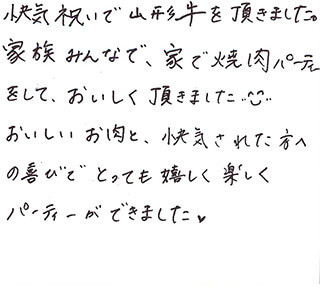 快気祝いで山形牛を頂きました。
家族みんなで、家で焼肉パーティ
をして、おいしく頂きました
おいしいお肉と、快気された方へ
の喜びでとっても嬉しく楽しく
パーティーができました♥